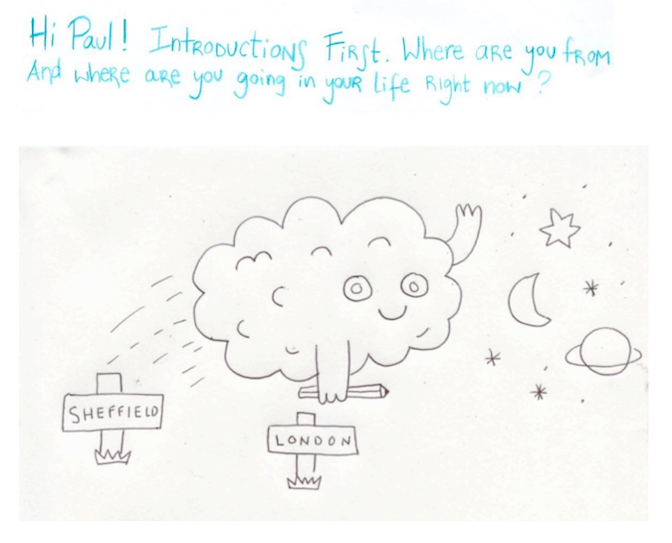 Hi Paul! Introductions First. Where are you from
And where are you going in your life right now?
SHEFFIELD
LONDON